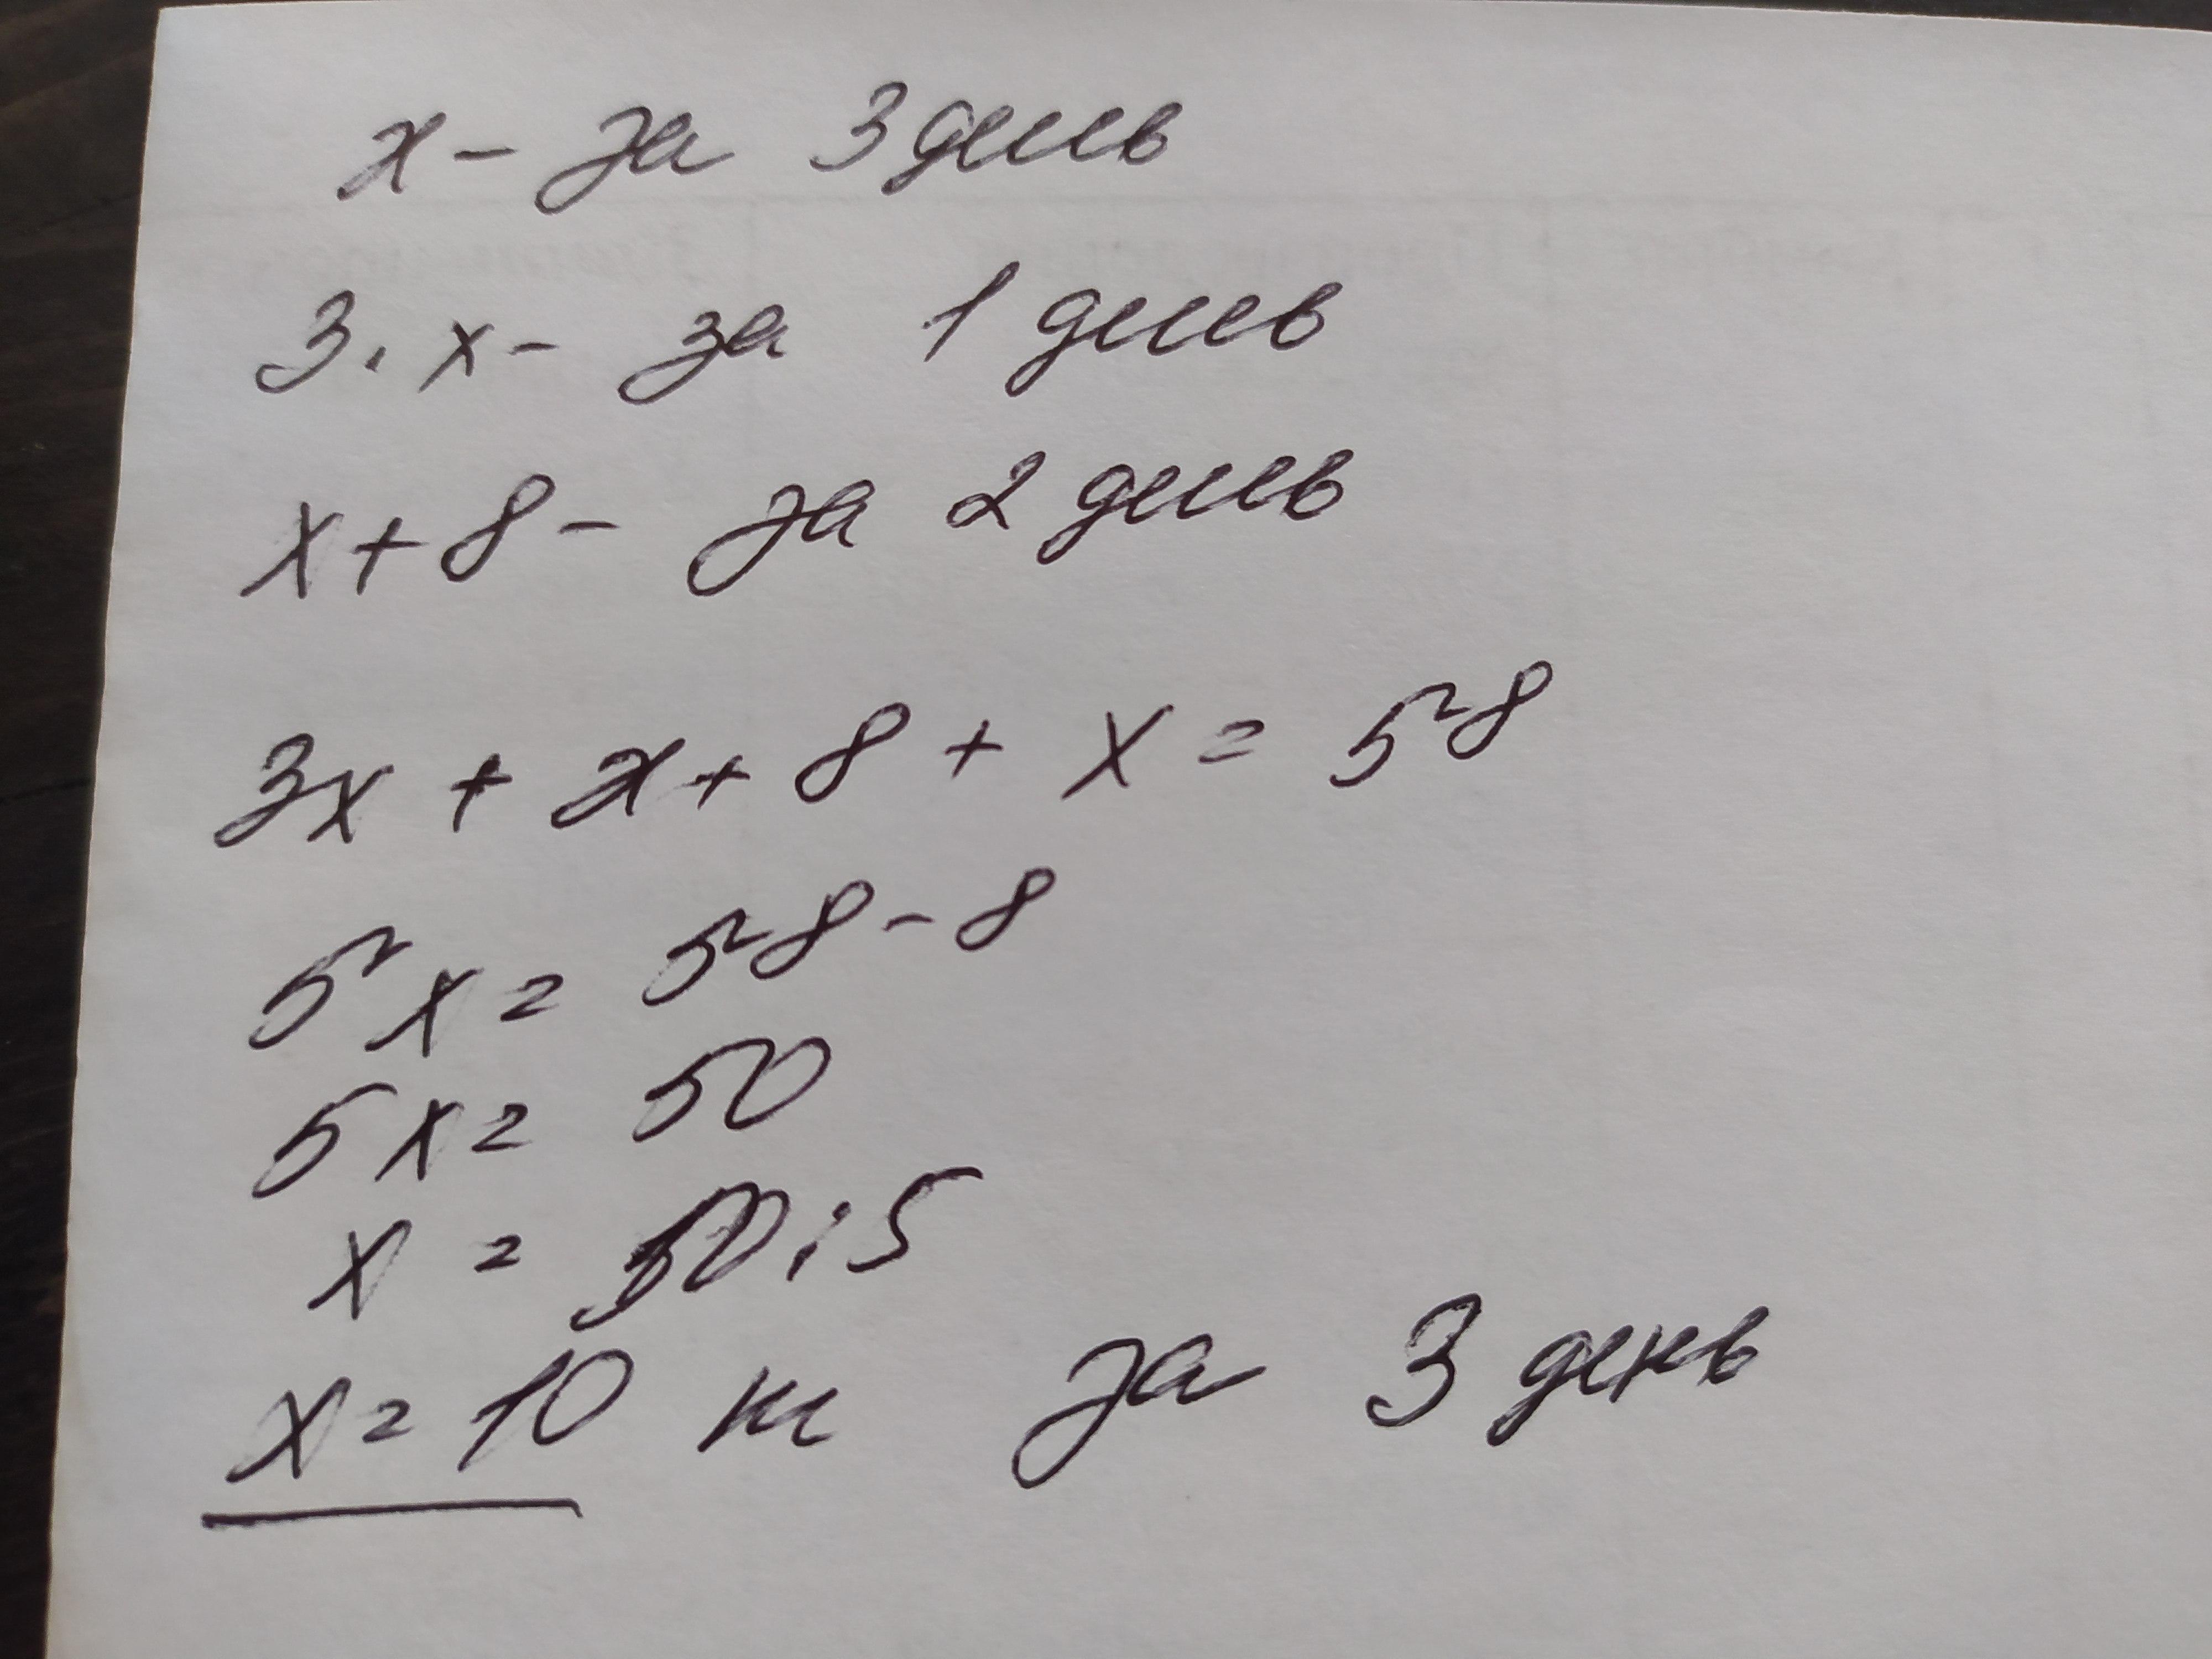 х - за 3 день
3. х - за 1 день
х + 8 - за 2 день
3х + х + 8 + х = 58
5х = 58 - 8
5х = 50
х = 50 : 5
х = 10 кг за 3 день